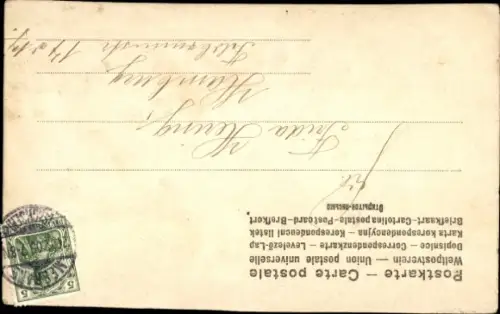 Postkarte – Carte postale
Weltpostverein — Union postale universelle
Dopisnice – Correspondenzkarte – Levelező-Lap
Karta korespondencyjna – Korespondenčni lístek
Briefkaart–Cartolina postale–Postcard–Brefkort
Открытое письмо
Frida Hering,
Hamburg
5
5